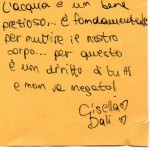 L'acqua è un bene
prezioso... è fondamentale
per nutrire il nostro
corpo... per questo
è un diritto di tutti
e non va negato!
Gisella♡
Dalì♡